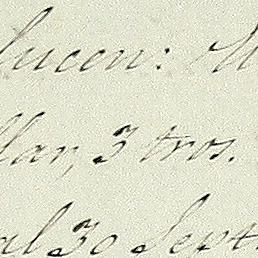 lucen:
llar, 3 tros.
al 30 Sept.